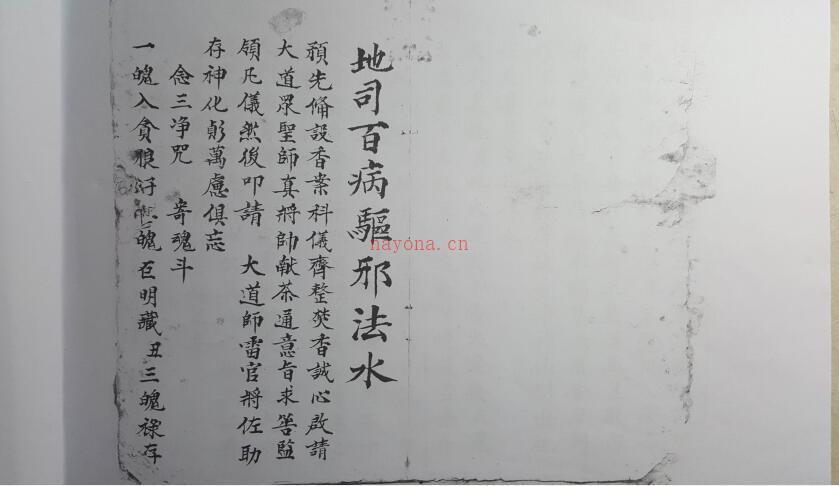 地司百病驅邪法水
預先俻設香案科儀齊整焚香誠心啟請
大道眾聖師真將帥献茶通意旨求筶監
領凡儀然後叩請 大道師雷官將佐助
存神化躬萬慮俱忘
念三净咒 寄魂斗
一魄入貪狼 魄巨明藏丑三魄祿存
nayona.cn